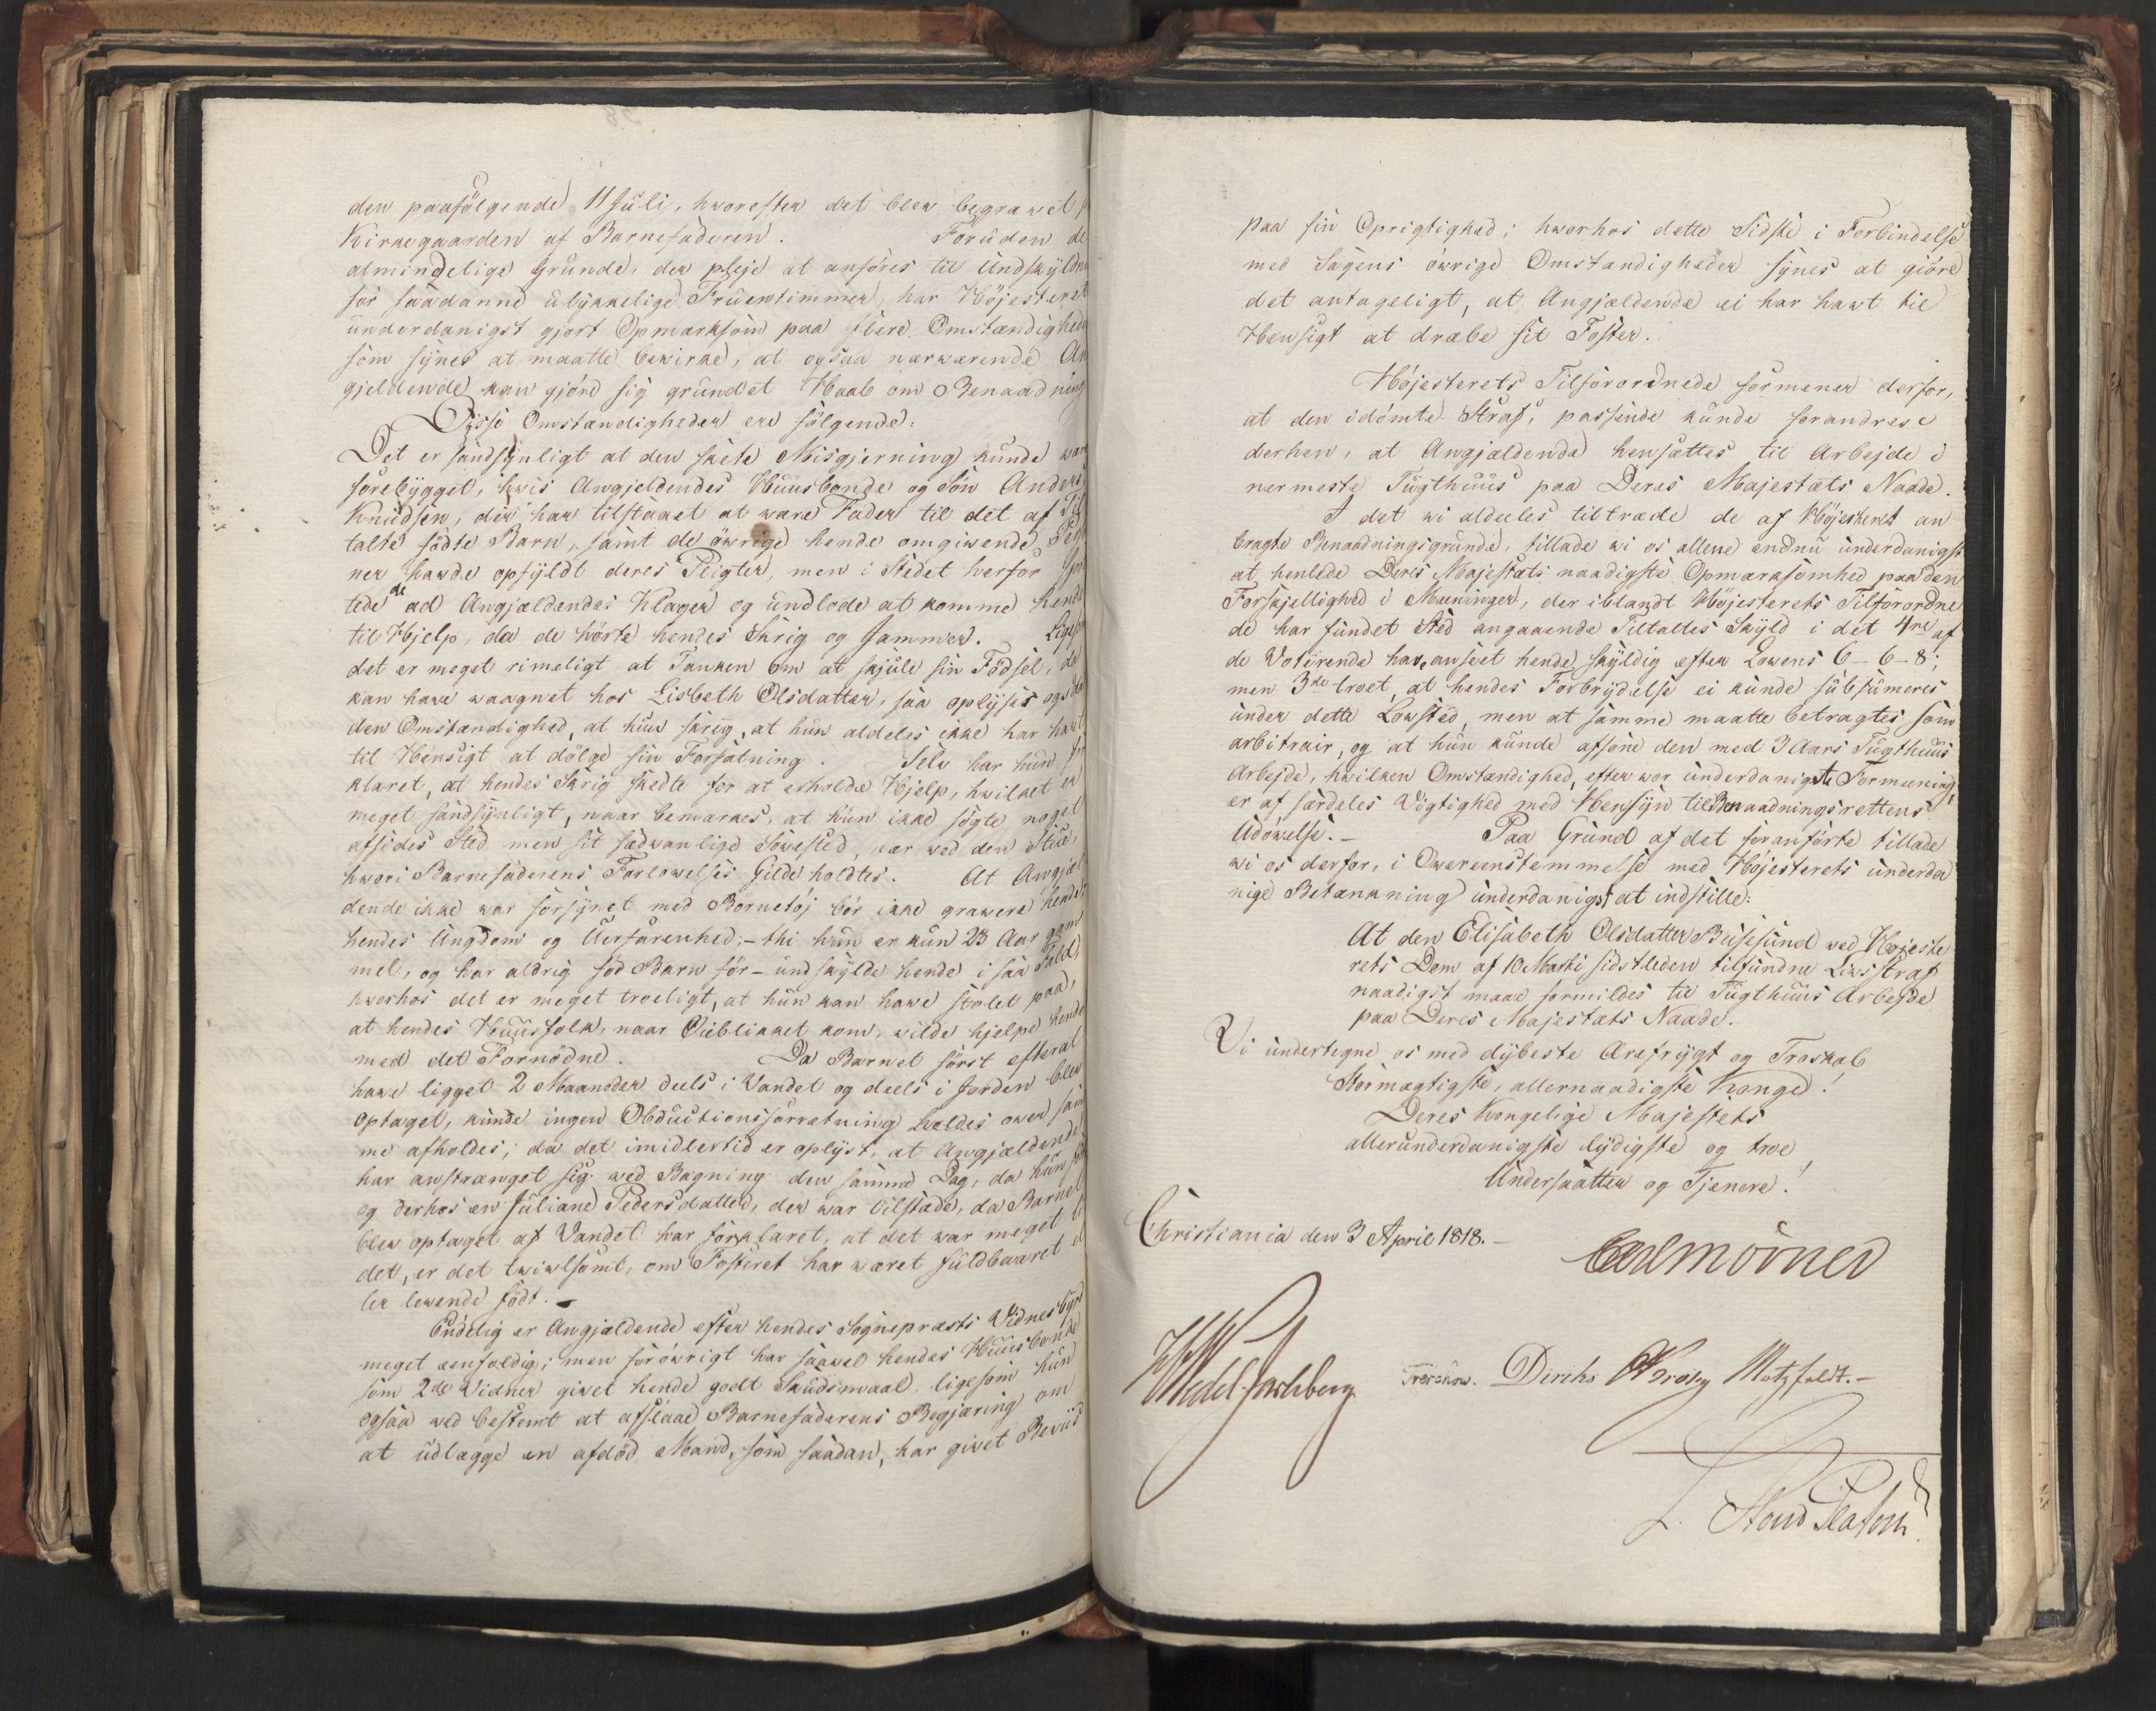 den paafölgende 11 Juli, hvorefter det blev begravet
Kirkegaarden af Barnefaderen. Foruden de
almindelige Grunde, der pleje at anföres til Undskyldn
for saadanne ulykkelige Fruentimmer, har Höjesteret
underdanigst gjort Opmærksom paa flere Omstændighed
som synes at maatte bevirke, at ogsaa nærværende An
gjeldende kan gjöre sig grundet Haab om Benaadning
Disse Omstændigheder ere fölgende:
Det er sandsynligt at den skete Misgjerning kunde vær
forebygget, hvis Angjeldendes Huusbonde og Sön Anders
Knudsen, der har tilstaaet at være Fader til det af Til
talte födte Barn, samt de övrige hende omgivende Perso
ner havde opfyldt deres Pligter, men i Stedet herfor
tede de ad Angjældendes Klager og undlode at komme hende
til Hjelp, da de hörte hendes Skrig og Jammer. Ligesom
det er meget rimeligt at Tanken om at skjule sin Födsel, da
kan have vaagnet hos Lisbeth Olsdatter, saa oplyses ogsaa
den Omstændighed, at hun skreg, at hun aldeles ikke har havt
til Hensigt at dölge sin Forfatning. Selv har hun for
klaret, at hendes Skrig skedte for at erholde Hjelp, hvilket er
meget sandsynligt, naar bemærkes, at hun ikke sögte noget
afsides Sted men sit sædvanlige Sovested, nær ved den Stue,
hvori Barnefaderens Forlovelses Gilde holdtes. At Angjæl
dende ikke var forsynet med Bornetöj bör ikke gravere hende,
hendes Ungdom og Uerfarenhed; - thi hun er kun 23 Aar gam
mel, og har aldrig föd Barn för - undskylde hende i saa Fald,
hvorhos det er meget troeligt, at hun kan have stolet paa,
at hendes Huusfolk, naar Öieblikket kom, vilde hjelpe hende
med det Fornödne. Da Barnet först efter at
have ligget 2 Maaneder deels i Vandet og deels i Jorden blev
optaget, kunde ingen Obductionsforretning holdes over sam
me afholdes; da det imidlertid er oplyst, at Angjældende
har anstrænget sig ved Bagning den samme Dag, da hun
og derhos en Juliane Pedersdatter, der var tilstæde, da Barnet
blev optaget af Vandet har forklaret, at det var meget
det, er det tvivlsomt, om Fosteret har været fuldbaaret el
ler levende födt. -
Endelig er Angjældende efter hendes Sognepræsts Vidnesbyrd
meget eenfoldig; men foröwrigt har saavel hendes Huusbonde
som 2de Vidner givet hende godt Skudsmaal ligesom hun
ogsaa ved bestemt at afslaae Barnefaderens Begjæring om
at udlægge en afdöd Mand, som saadan, har givet Beviis
paa sin Oprigtighed; hvorhos dette Sidste i Forbindelse
med Sagens övrige Omstændigheder synes at gjöre
det antageligt, at Angjældende ei har havt til
Hensigt at dræbe sit Foster.
Höjesterets Tilforordnede formener derfor,
at den idömte Straf, passende kunde forandres
derhen, at Angjældende hensættes til Arbejde i
nermeste Tugthuus paa Deres Majestæts Naade.
I det vi aldeeles tiltræde de af Höjesteret an
bragte Benaadningsgrunde, tillade vi os allene endnu underdanigst
at henlede Deres Majestæts naadigste Opmærksomhed paa den
Forskjellighed i Meeninger, der iblandt Höjesterets Tilforordne
de har fundet Sted angaaende Tiltaltes Skyld i det 4re af
de Voterende have anseet hende skyldig efter Lovens 6-6-8;
men 3de troet, at hendes Forbrydelse ei kunde subsumeres
under dette Lovsted, men at samme maatte betragtes som
arbitrair, og at hun kunde afsone den med 3 Aars Tugthuus
Arbejde, hvilken Omstændighed, efter vor underdanigste Formeening,
er af særdeles Vigtighed med Hensyn til Benaadningsrettens
Udövelse. - Paa Grund af det foranförte tillade
vi os derfor, i Overeenstemmelse med Höjesterets underda
nige Betænkning underdanigst at indstille:
At den Elisabeth Olsdatter Busesund ved Höjeste
rets Dom af 10 Marti sidstleden tilfundne Livsstraf
naadigst maae formildes til Tugthuus Arbejde
paa Deres Majestæts Naade.
Vi undertegne os med dybeste Ærefrygt og Troskab
Stormægtigste, allernaadigste Konge!
Deres Kongelige Majestets
allerunderdanigste lydigste og troe
Undersaatter og Tjenere!
Christiania den 3 April 1818. -
Carl Mörner
Wedel Jarlsberg Treschow. Diriks Krog Motzfeldt. -
L. Stoud Platou